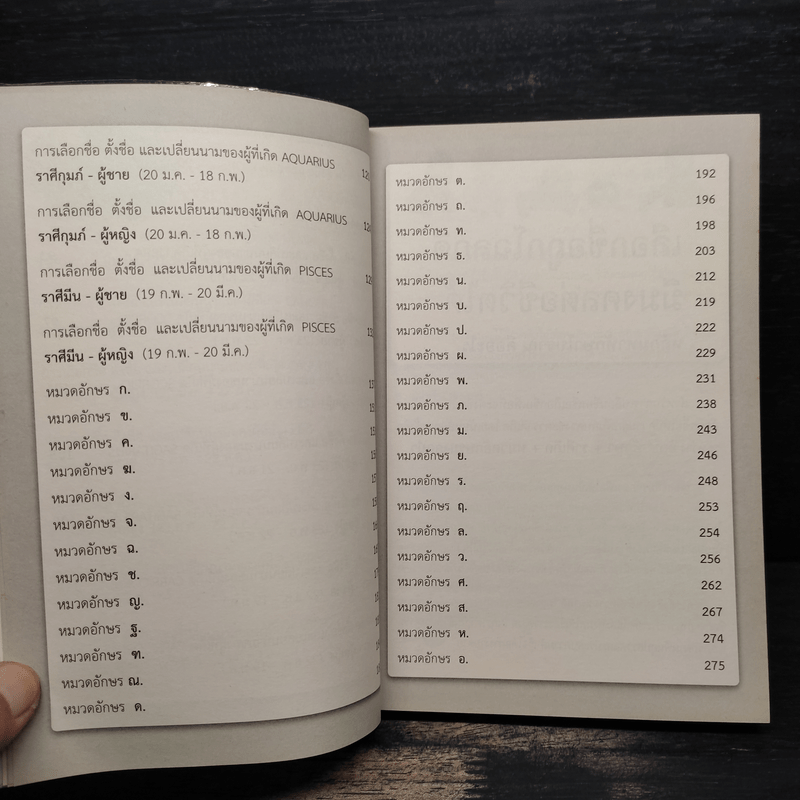 การเลือกชื่อ ตั้งชื่อ และเปลี่ยนนามของผู้ที่เกิด AQUARIUS
ราศีกุมภ์ - ผู้ชาย (20 ม.ค. - 18 ก.พ.)
การเลือกชื่อ ตั้งชื่อ และเปลี่ยนนามของผู้ที่เกิด AQUARIUS
ราศีกุมภ์ - ผู้หญิง (20 ม.ค. - 18 ก.พ.)
การเลือกชื่อ ตั้งชื่อ และเปลี่ยนนามของผู้ที่เกิด PISCES
ราศีมีน - ผู้ชาย (19 ก.พ. - 20 มี.ค.)
การเลือกชื่อ ตั้งชื่อ และเปลี่ยนนามของผู้ที่เกิด PISCES
ราศีมีน - ผู้หญิง (19 ก.พ. - 20 มี.ค.)
หมวดอักษร ก.
หมวดอักษร ข.
หมวดอักษร ค.
หมวดอักษร ฆ.
หมวดอักษร ง.
หมวดอักษร จ.
หมวดอักษร ฉ.
หมวดอักษร ช.
หมวดอักษร ญ.
หมวดอักษร ฐ.
หมวดอักษร ฑ.
หมวดอักษร ณ.
หมวดอักษร ด.
หมวดอักษร ต. 192
หมวดอักษร ถ. 196
หมวดอักษร ท. 198
หมวดอักษร ธ. 203
หมวดอักษร น. 212
หมวดอักษร บ. 219
หมวดอักษร ป. 222
หมวดอักษร ผ. 229
หมวดอักษร พ. 231
หมวดอักษร ภ. 238
หมวดอักษร ม. 243
หมวดอักษร ย. 246
หมวดอักษร ร. 248
หมวดอักษร ฤ. 253
หมวดอักษร ล. 254
หมวดอักษร ว. 256
หมวดอักษร ศ. 262
หมวดอักษร ส. 267
หมวดอักษร ห. 274
หมวดอักษร อ. 275